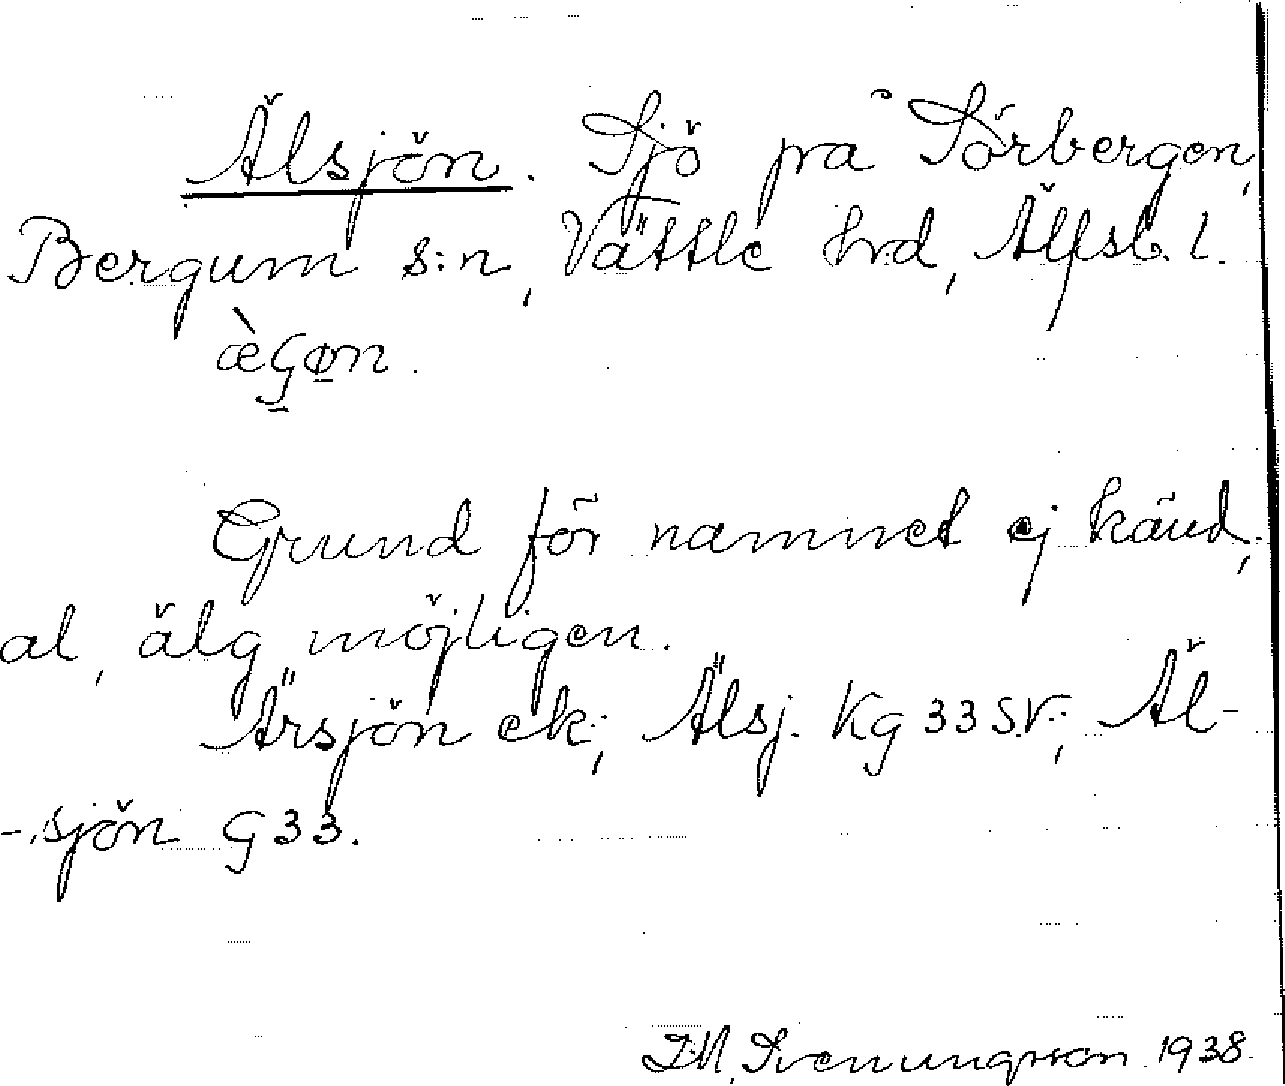 Älsjön. Sjö på Sörbergen,
Bergum s:n, Vättle hrd, Älfsb. l.
æ̀Gøn.
Grund för namnet ej känd,
al, älg möjligen.
Ärsjön ek; Älsj. Kg 33 SV; Äl-
-sjön G 33.
Svenungsson 1938